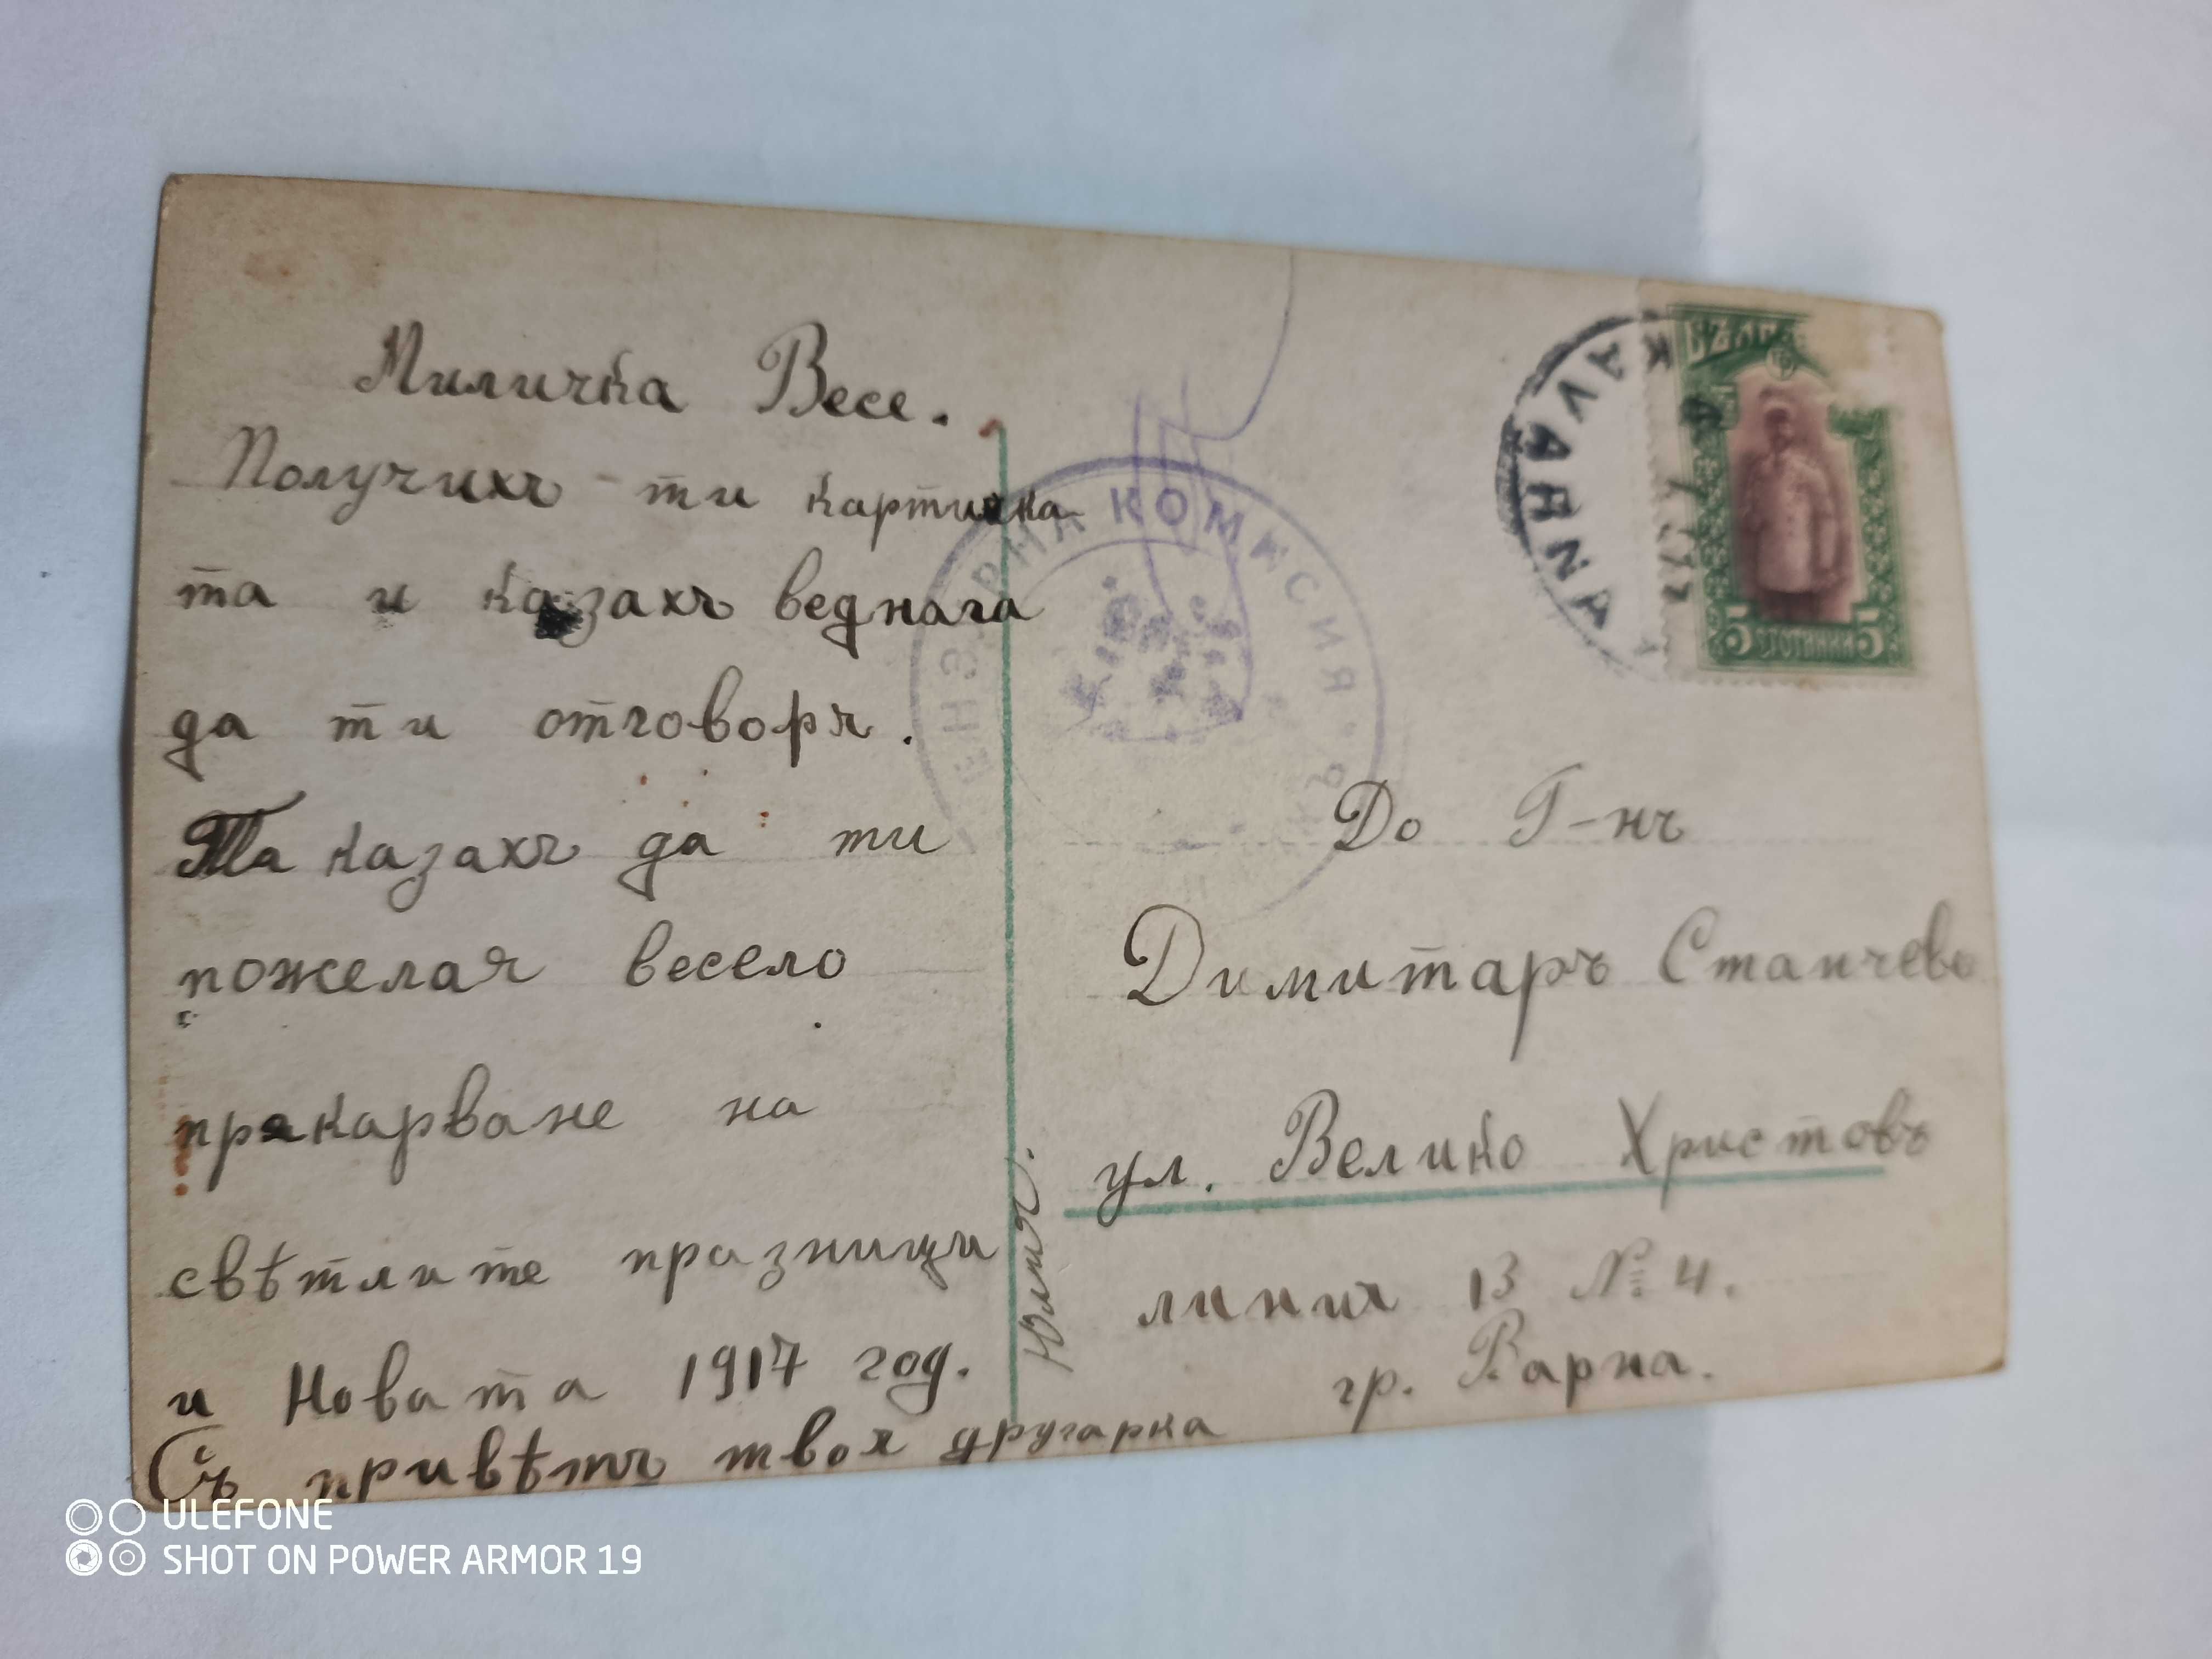 Миличка Весе.
Получихъ ти картичка
та и казахъ веднага
да ти отговоря.
Та казахъ да ти
пожелая весело
прекарване на
свѣтлите празници
и Новата 1917 год.
Съ привѣтъ твоя другарка
Юлия.
ЕНЗОРНА КОМИСИЯ
KAVARNA
БЪЛГ
5 СТОТИНКИ 5
До Г-нъ
Димитаръ Станчевъ
ул. Велико Христовъ
линия 13 № 4.
гр. Варна.
ULEFONE
SHOT ON POWER ARMOR 19